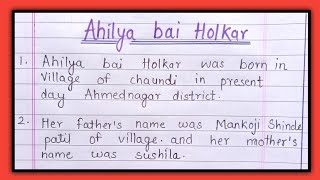 Ahilya bai Holkar
1. Ahilya bai Holkar was born in
village of chaundi in present
day Ahmednagar district.
2. Her father's name was Mankoji Shinde
patil of village. and her mother's
name was sushila.